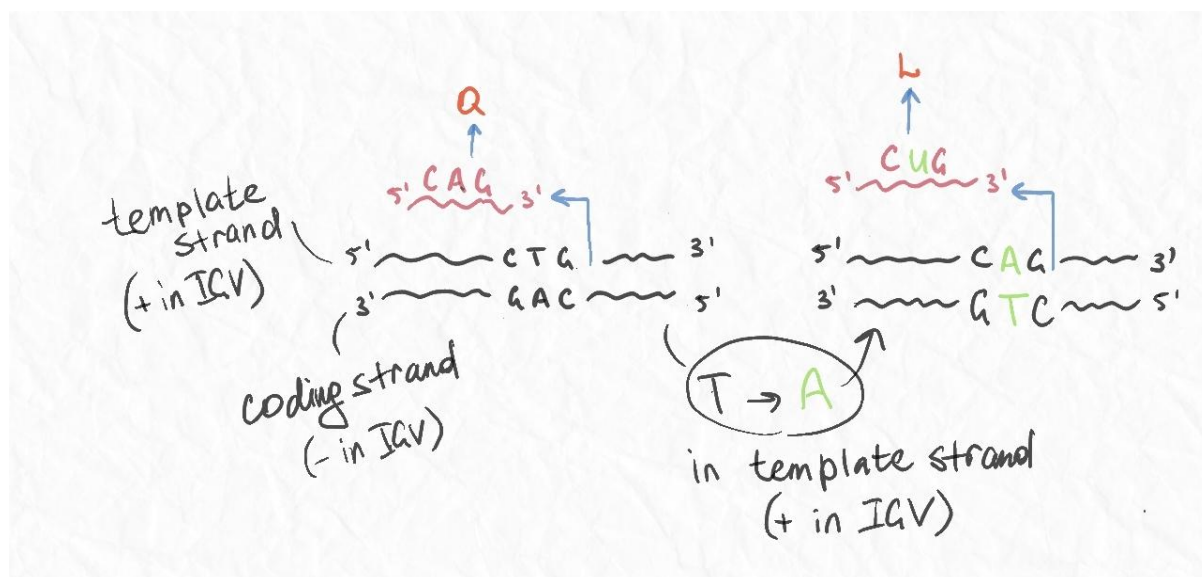 Q
5' CAG 3'
template
strand
(+ in IGV)
5' CTG 3'
3' GAC 5'
coding strand
(- in IGV)
L
5' CUG 3'
5' CAG 3'
3' GTC 5'
T → A
in template strand
(+ in IGV)